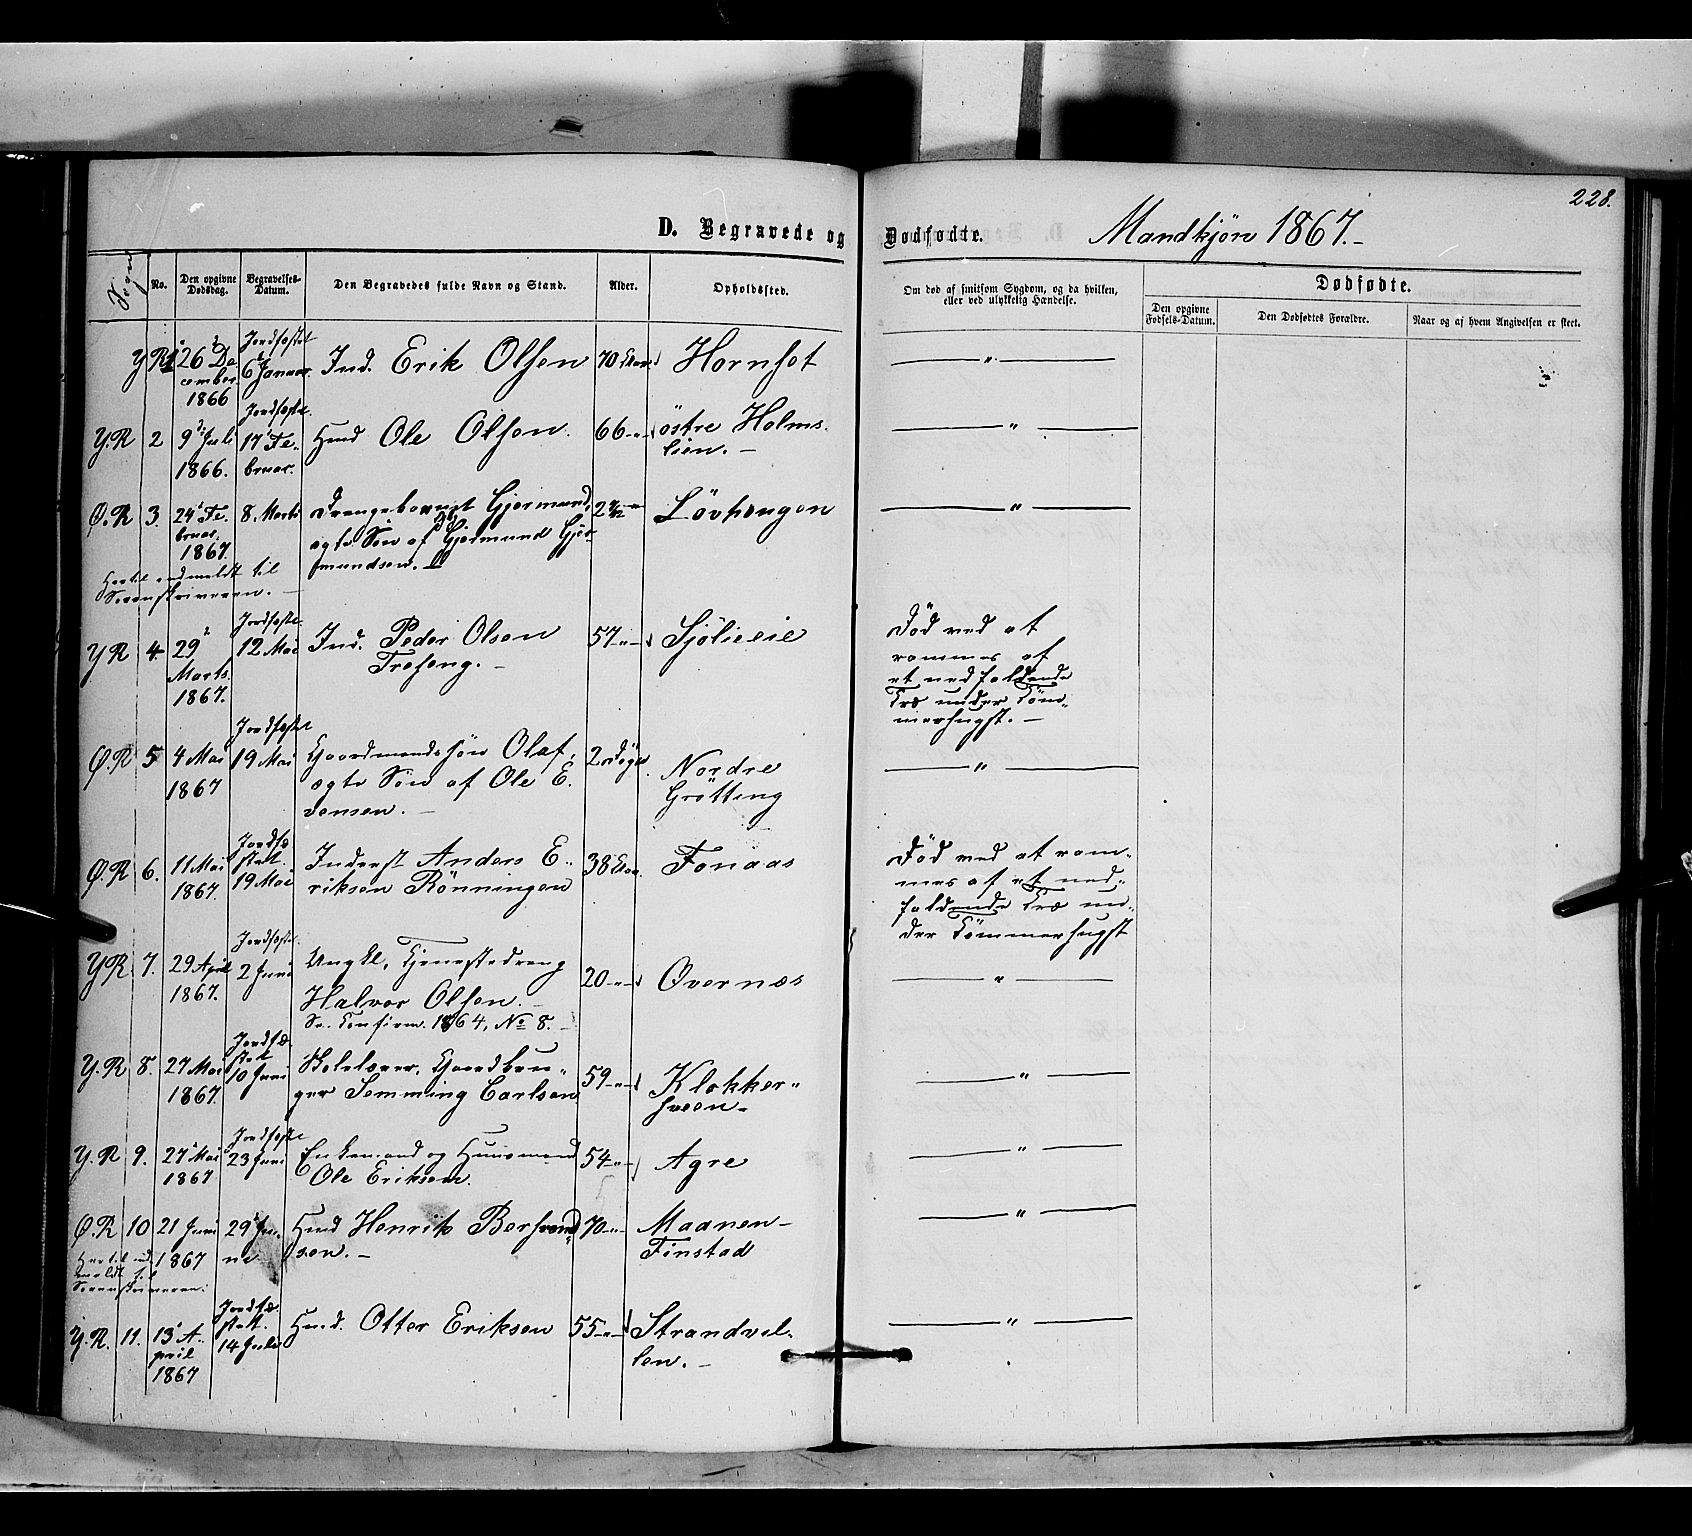 228.
D. Begravede og Dødfødte.
Mandkjøn 1867.-
Sogn
No.
Den opgivne Dødsdag.
Begravelses-Datum.
Den Begravedes fulde Navn og Stand.
Alder.
Opholdssted.
Om død af smitsom Sygdom, og da hvilken,
eller ved ulykkelig Hændelse.
Dødfødte.
Den opgivne Fødsels-Datum.
Den Dødfødtes Forældre.
Naar og af hvem Angivelsen er skeet.
Y R 1 26 De-
cember
1866
Jordfæstet
6 Januar.
Ind. Erik Olsen
70 Aar
Hornset
— " —
Y.R 2 9 Juli
1866.
Jordfæstet.
17 Fe-
bruar.
Husmd Ole Olsen.
66 - " -
östre Holms-
lien. -
— " —
Ø.R 3. 24 Fe-
bruar.
1867.
8. Marts
Drengebarnet Gjermund,
ægte Søn af Gjermund Gjer-
mundsen.
Løvhaugen
— " —
Hertil anmeldt til
Sorenskriveren. -
Y R 4. 29
Marts.
1867.
Jordfæstet.
12 Mai
Ind. Peder Olsen
Træseng. -
57 - " -
Sjölieeie
Död ved at
rammes af
et nedfaldende
Træ under Töm-
merhugst. -
Ø.R 5 4 Mai
1867
Jordfæstet
19 Mai
Gaardmandssøn Olaf,
ægte Søn af Ole E-
vensen. -
2 Døgn
Nordre
Grötting
— " —
Ø.R 6. 11 Mai
1867.
Jordfæ-
stet.
19 Mai
Inderst Anders E-
riksen Rönningen
38 Aar.
Fonaas
Död ved at ram-
mes af et ned-
faldende Træ un-
der Tömmerhugst
Y R. 7. 29 April
1867.
Jordfæstet.
2 Juni
Ungkl, Tjenestedreng
Halvor Olsen. -
Se. Confirm. 1864, No 8. -
20 - " -
Övernæs
— " —
Y. R 8. 27 Mai
1867.
Jordfæ-
stet.
10 Juni
Skolelærer, Gaardbru-
ger Semming Carlsen
59 - " -
Klokker-
hveen -
— " —
Y. R 9. 27 Mai
1867
Jordfæstet
23 Juni
Enkemand og Huusmand
Ole Eriksen.
54 - " -
Agre
— " —
Ø. R 10 21 Juni
1867
29 Ju-
ni
Husmd Henrik Bersvend-
sen. -
70 - " -
Maanen-
Finstad
— " —
Hertil ind-
meldt til
Sorenskriveren.
Y. R. 11. 13 A-
pril
1867
Jordfæ-
stet.
14 Juli
Husmd. Otter Eriksen
55 - " -
Strandvol-
len. -
— " —